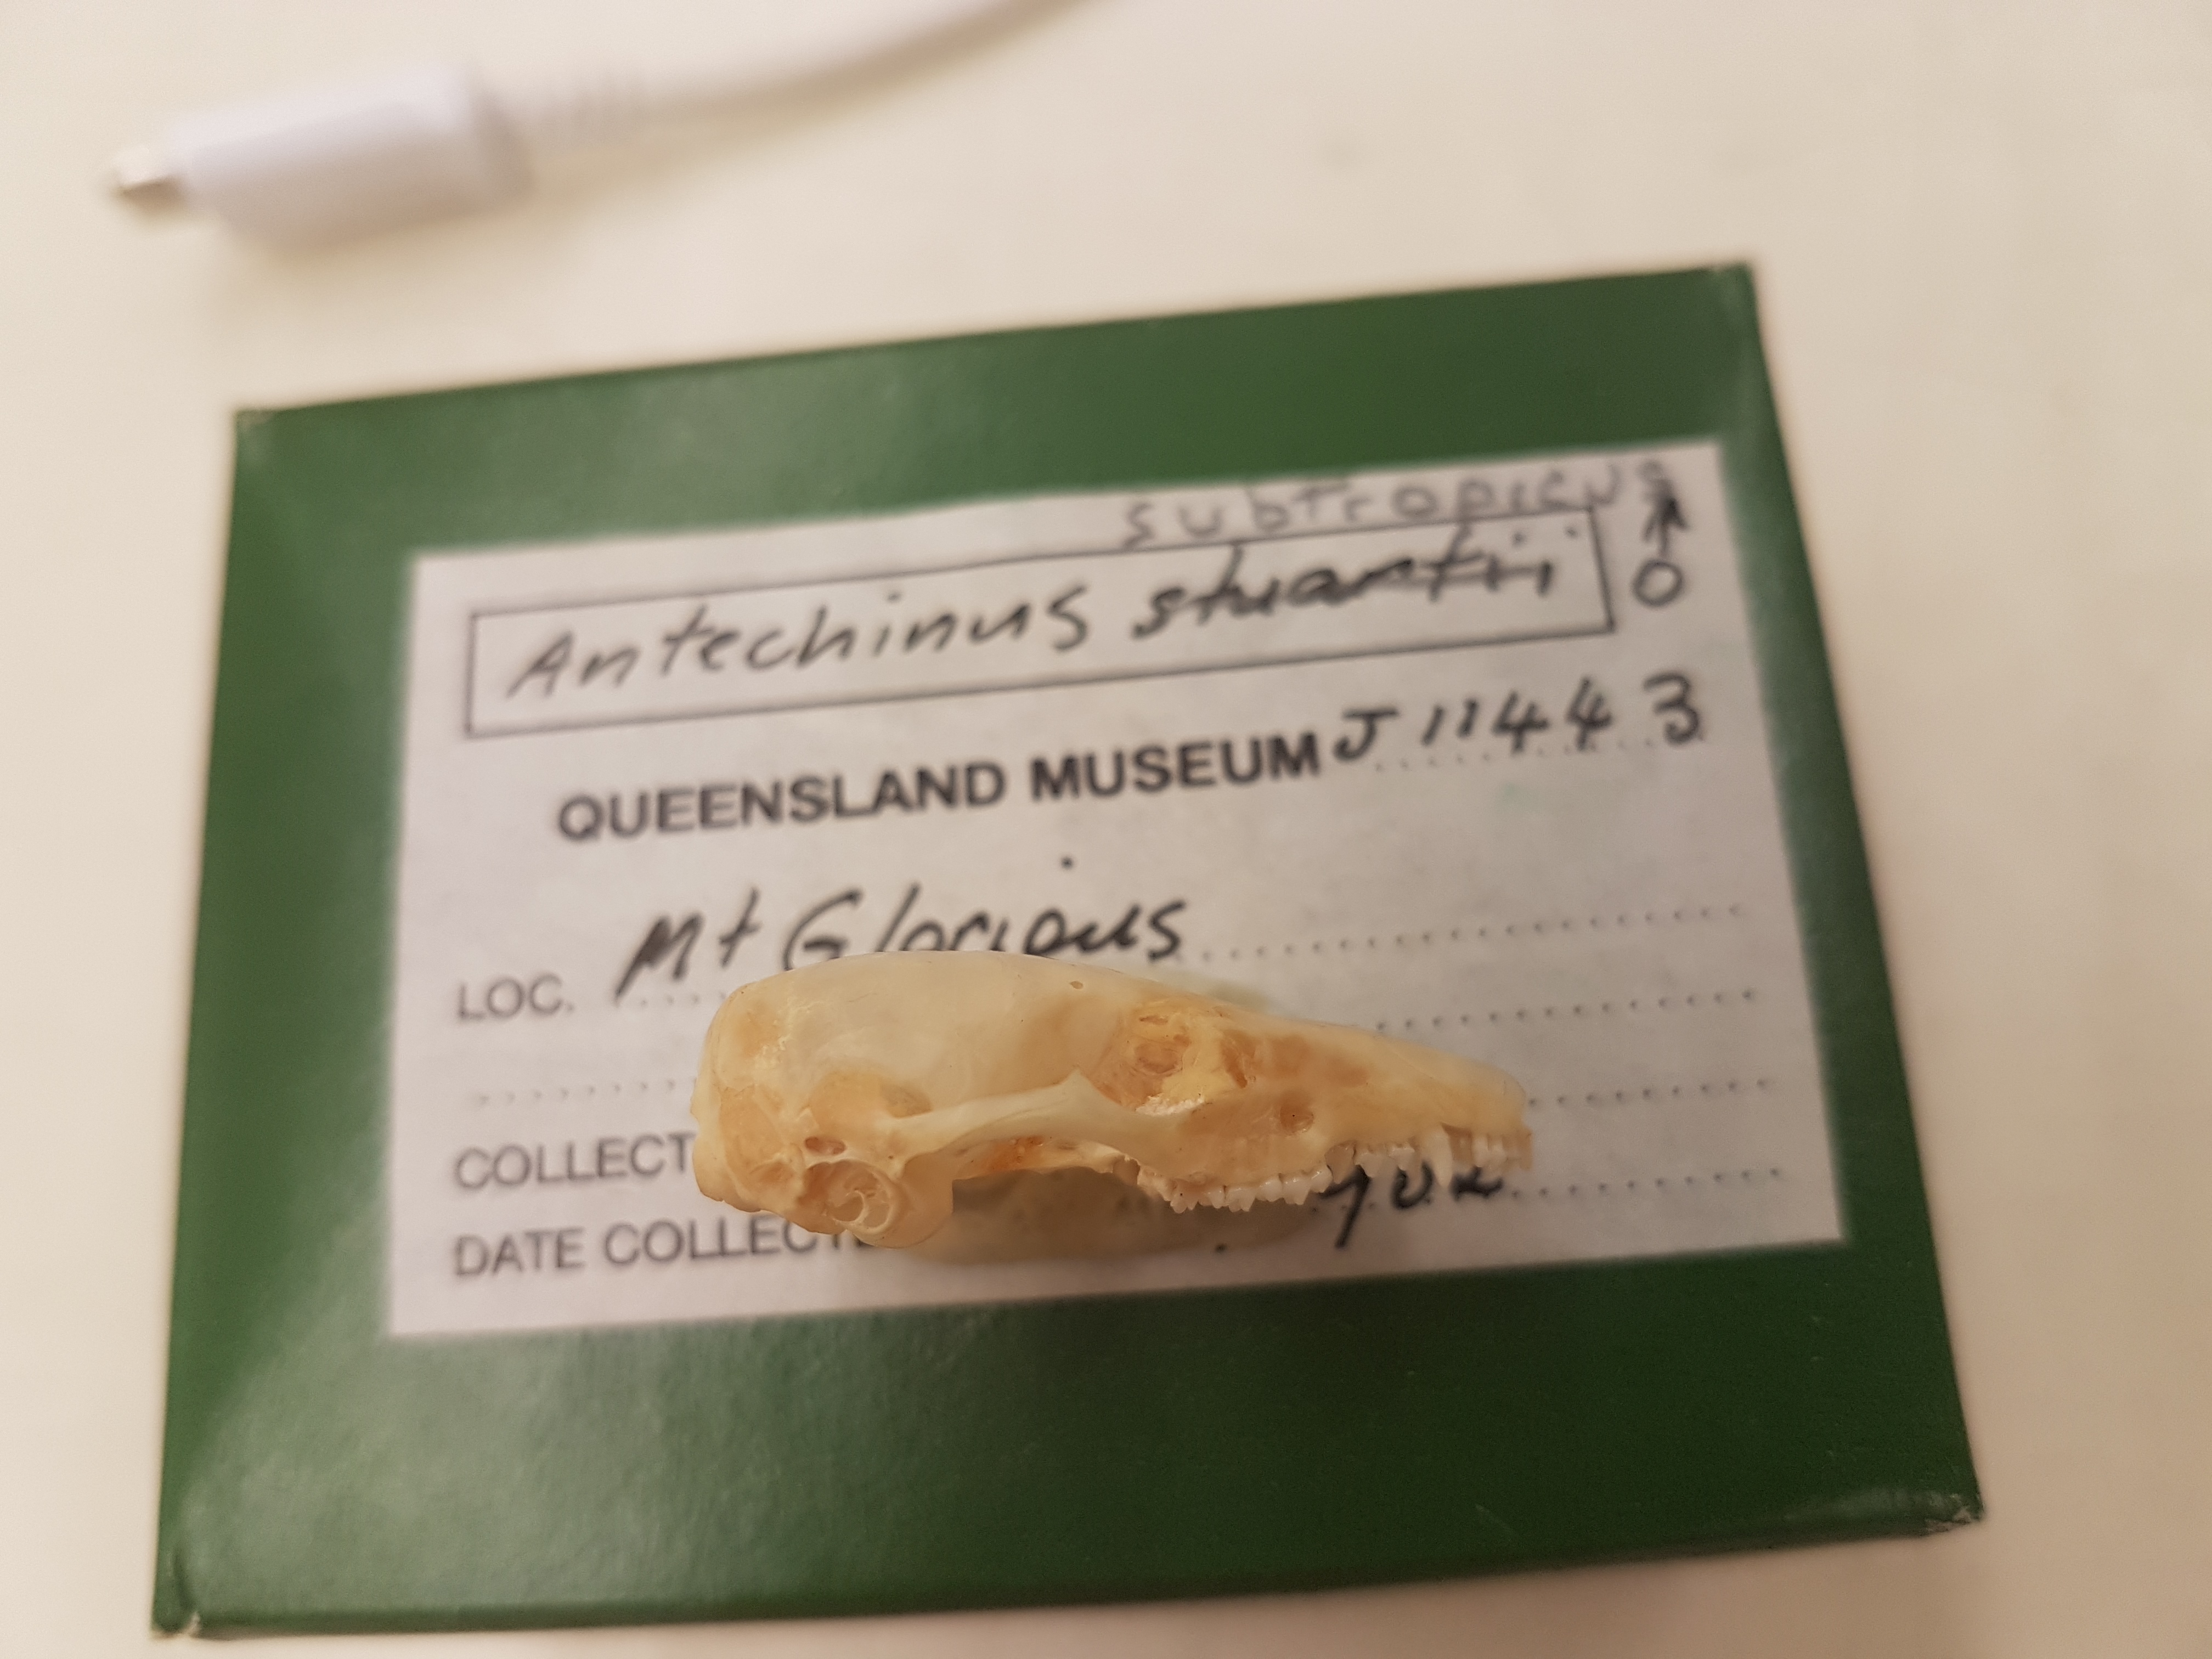 subtropicus
Antechinus stuartii ♂
QUEENSLAND MUSEUM J11443
LOC. Mt Glorious
COLLECT
DATE COLLECTE